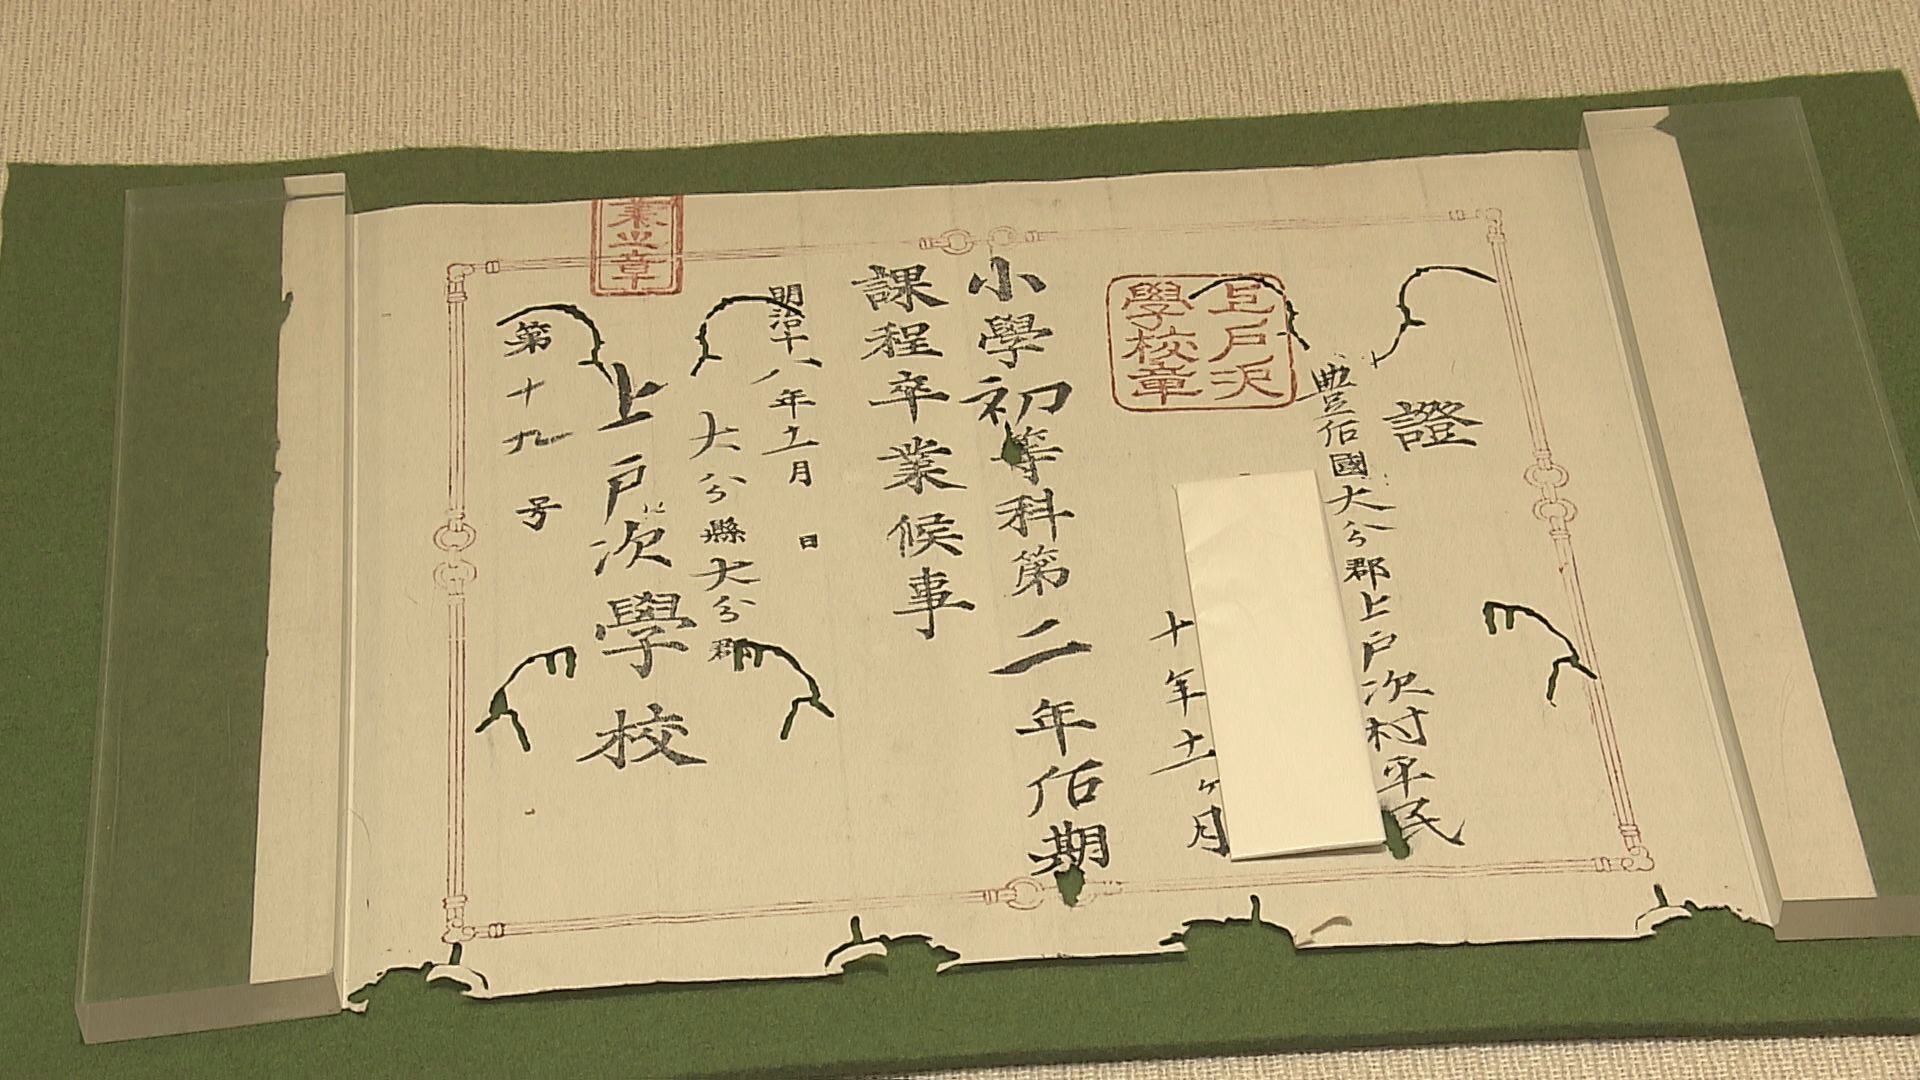 證
豊后國大分郡上戸次村平民
十年十一ヶ月
上戸次
學校章
小學初等科第二年后期
課程卒業候事
明治十八年十一月 日
大分縣大分郡
上戸次學校
業之章
第十九号